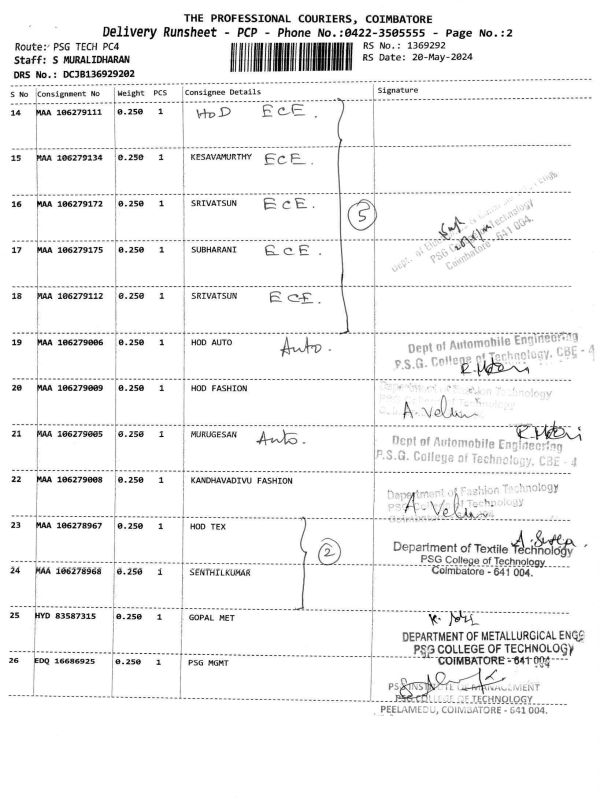 THE PROFESSIONAL COURIERS, COIMBATORE
Delivery Runsheet - PCP - Phone No.:0422-3505555 - Page No.:2
Route: PSG TECH PC4 RS No.: 1369292
Staff: S MURALIDHARAN RS Date: 20-May-2024
DRS No.: DCJB136929202
S No Consignment No Weight PCS Consignee Details Signature
14 MAA 106279111 0.250 1 HOD ECE.
15 MAA 106279134 0.250 1 KESAVAMURTHY ECE.
16 MAA 106279172 0.250 1 SRIVATSUN ECE.
5
Coimbatore - 641 004.
17 MAA 106279175 0.250 1 SUBHARANI ECE.
18 MAA 106279112 0.250 1 SRIVATSUN ECE.
19 MAA 106279006 0.250 1 HOD AUTO Auto.
Dept of Automobile Engineering
P.S.G. College of Technology, CBE - 4
20 MAA 106279009 0.250 1 HOD FASHION
Department of Fashion Technology
A. Velu
21 MAA 106279005 0.250 1 MURUGESAN Auto.
Dept of Automobile Engineering
P.S.G. College of Technology, CBE - 4
22 MAA 106279008 0.250 1 KANDHAVADIVU FASHION
Department of Fashion Technology
A. Velu
23 MAA 106278967 0.250 1 HOD TEX
2
Department of Textile Technology
PSG College of Technology
Coimbatore - 641 004.
24 MAA 106278968 0.250 1 SENTHILKUMAR
25 HYD 83587315 0.250 1 GOPAL MET
DEPARTMENT OF METALLURGICAL ENGG
PSG COLLEGE OF TECHNOLOGY
COIMBATORE - 641 004
26 EDQ 16686925 0.250 1 PSG MGMT
PSG INSTITUTE OF MANAGEMENT
PSG COLLEGE OF TECHNOLOGY
PEELAMEDU, COIMBATORE - 641 004.